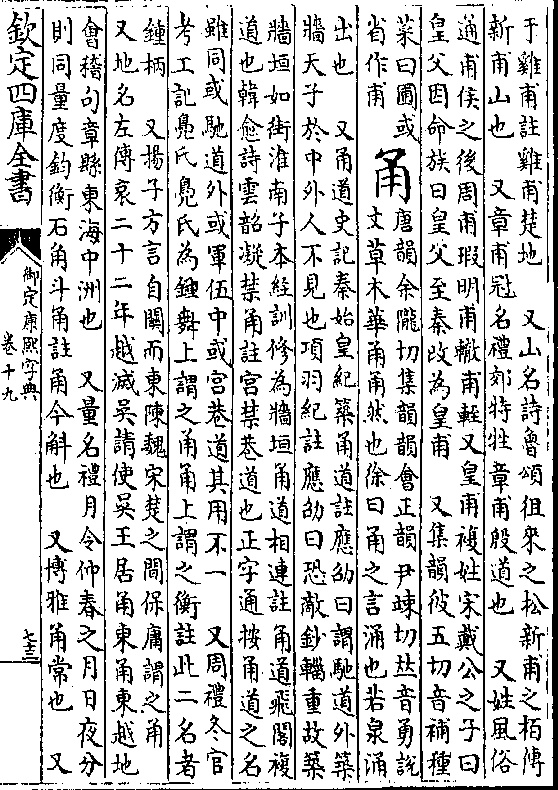 于雞甫註雞甫楚地　又山名詩魯頌徂來之松新甫之栢傳
新甫山也　又章甫冠名禮郊特牲章甫殷道也　又姓風俗
通甫侯之後周甫瑕明甫轍甫輕又皇甫複姓宋戴公之子曰
皇父因命族曰皇父至秦改為皇甫　又集韻彼五切音補種
菜曰圃或省作甫
甬唐韻余隴切集韻韻會正韻尹竦切𠀤音勇說文草木華甬甬然也徐曰甬之言涌也若泉涌
出也　又甬道史記秦始皇紀築甬道註應劭曰謂馳道外築
牆天子於中外人不見也項羽紀註應劭曰恐敵鈔輜重故築
牆垣如街淮南子本經訓修為牆垣甬道相連註甬道飛閣複
道也韓愈詩雲韶凝禁甬註宮禁巷道也正字通按甬道之名
雖同或馳道外或軍伍中或宮巷道其用不一　又周禮冬官
考工記鳧氏鳧氏為鍾舞上謂之甬甬上謂之衡註此二名者
鍾柄　又揚子方言自關而東陳魏宋楚之間保庸謂之甬
又地名左傳哀二十二年越滅吳請使吳王居甬東甬東越地
會稽句章縣東海中洲也　又量名禮月令仲春之月日夜分
則同量度鈞衡石角斗甬註甬今斛也　又博雅甬常也　又
欽定四庫全書
御定康熙字典
卷十九
七十三